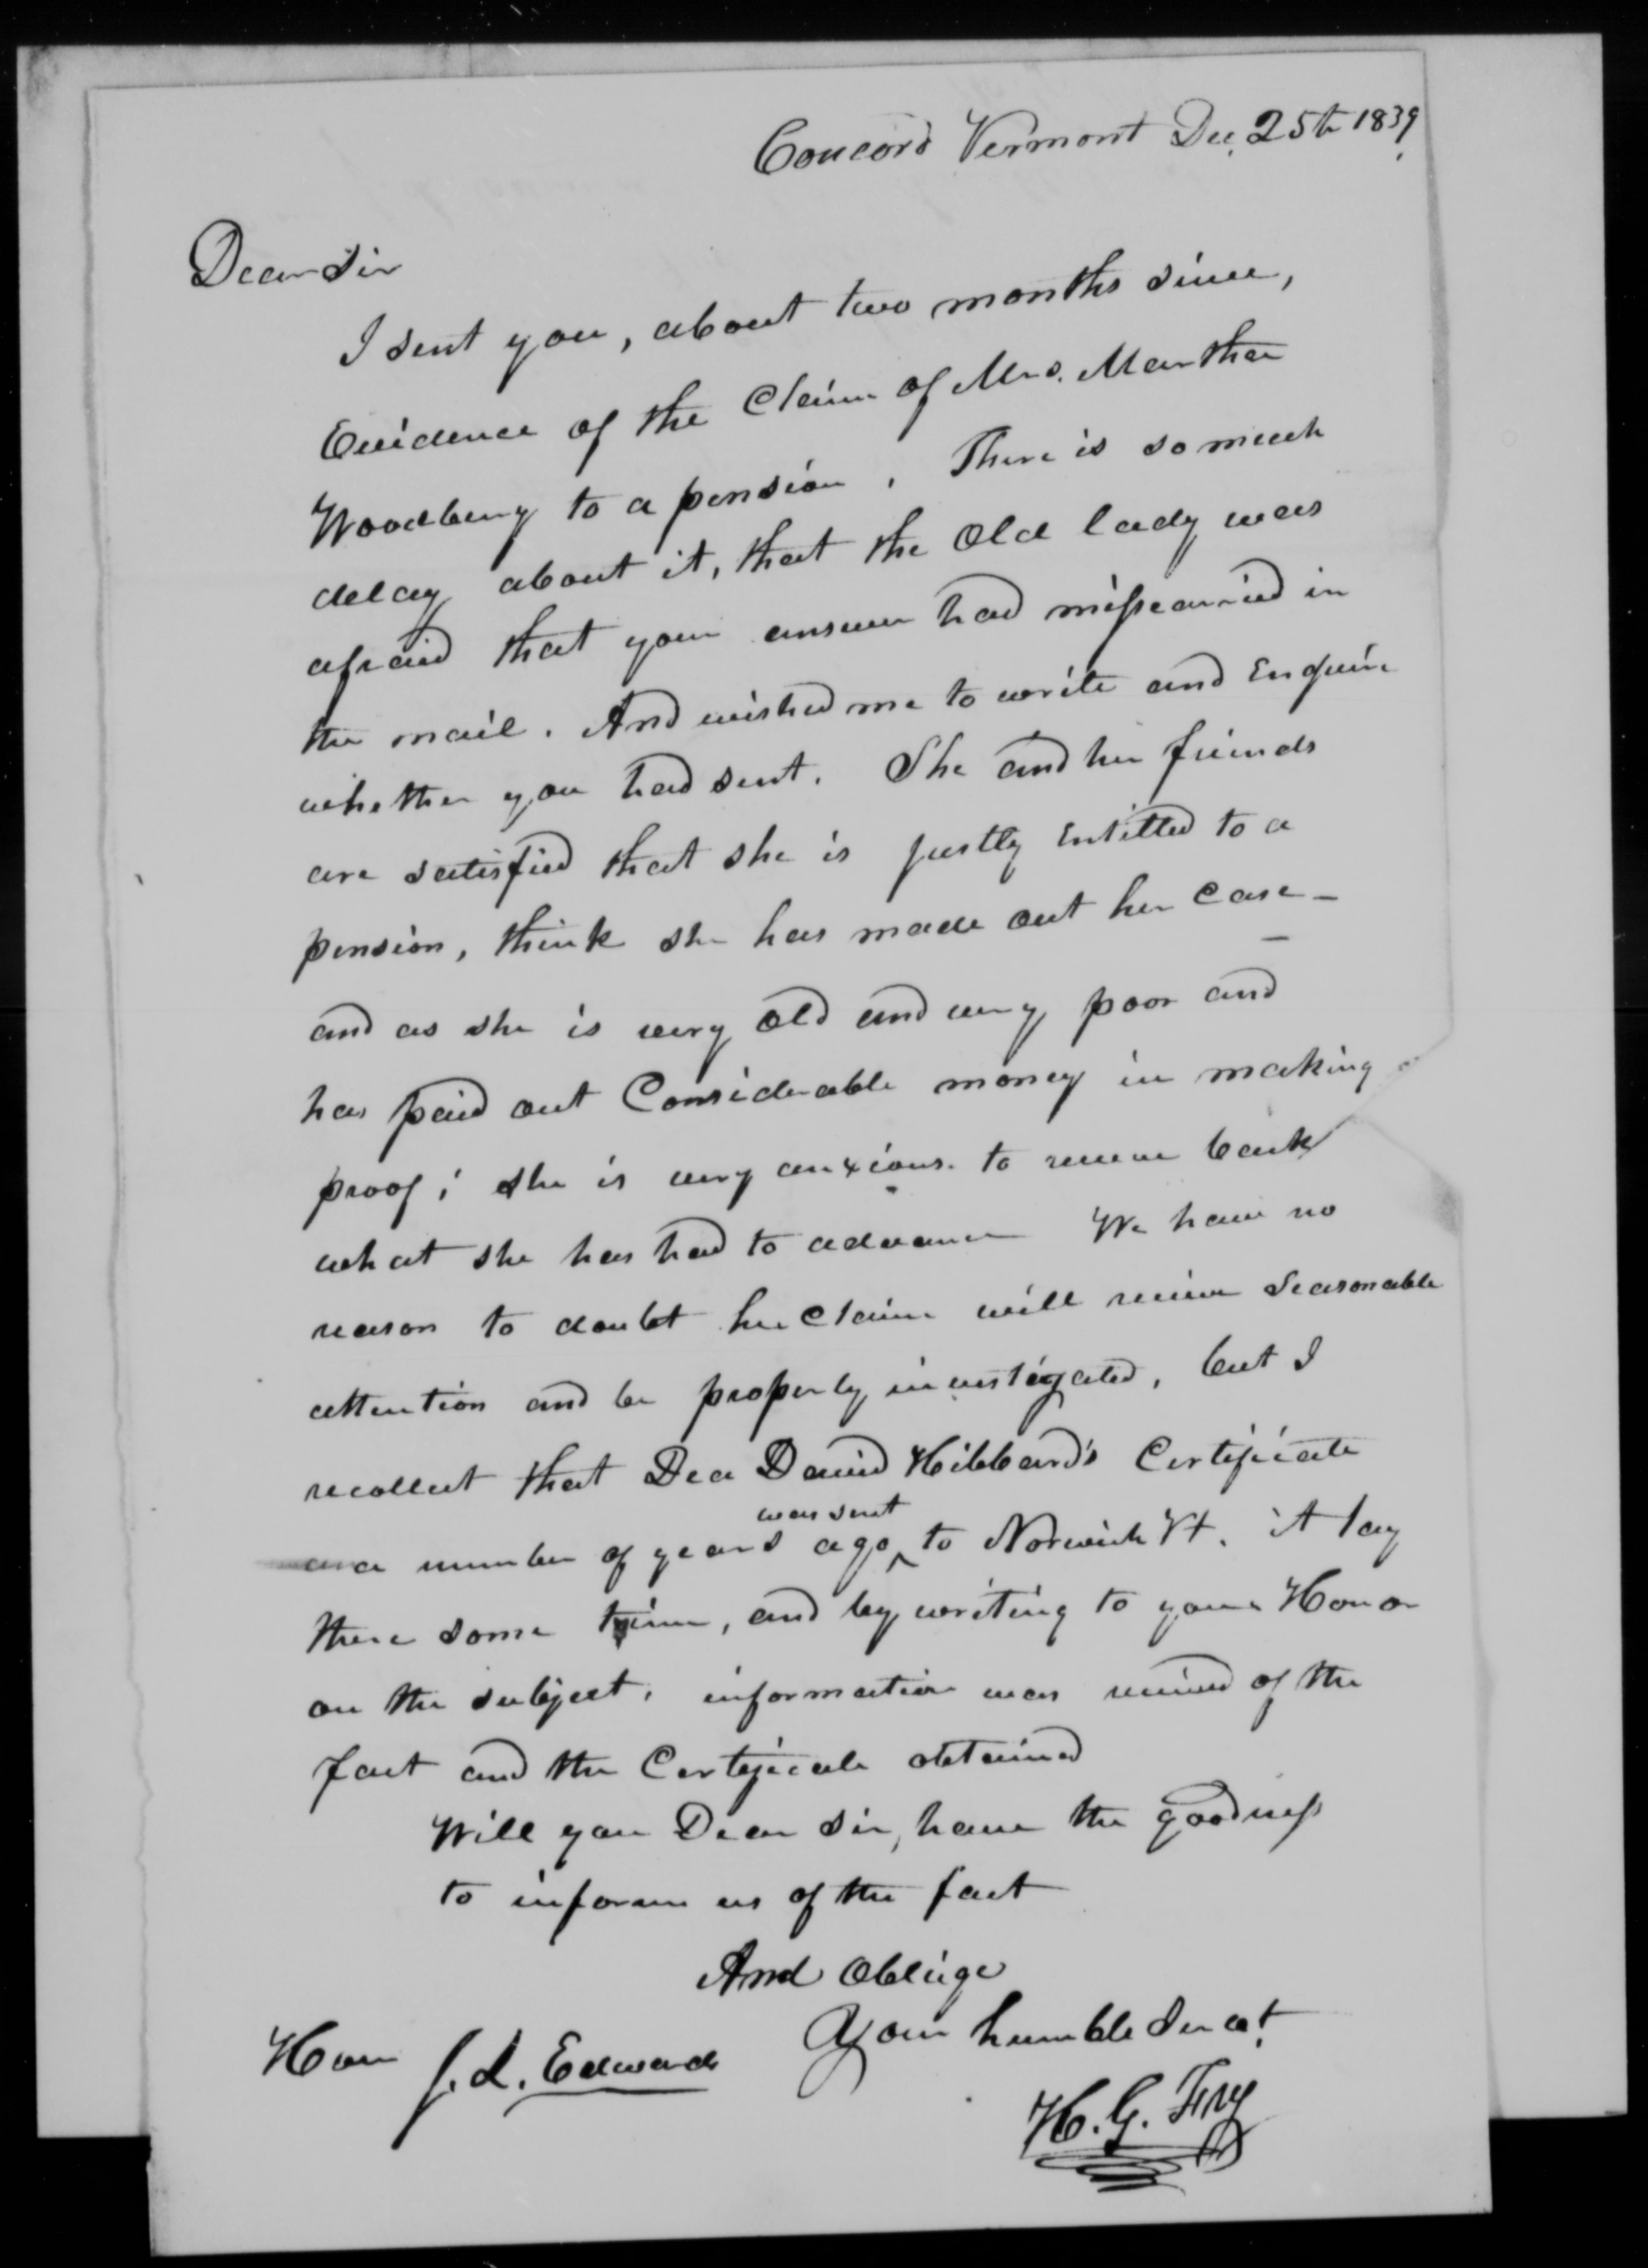 Concord Vermont Dec. 25th 1839,
Dear Sir
I sent you, about two months since,
Evidence of the Claim of Mrs. Martha
Woodbury to a pension. There is so much
delay about it, that the Old lady was
afraid that your answer had misscarried in
the mail. And wished me to write and Enquire
whether you had sent. She and her friends
are satisfied that she is justly Entitled to a
pension, think she has made out her case —
and as she is very old and very poor and
has paid out Considerable money in making
proof; she is very anxious. to receive back
what she has had to advance We have no
reason to doubt her claim will receive Seasonable
attention and be properly investigated, but I
recollect that Dea David Hibbard's Certificate
was sent
a number of years ago ^ to Norwich Vt. it lay
there some time, and by writing to your Honor
on the subject, information was received of the
fact and the Certificate obtained
Will you Dear Sir, have the goodness
to inform us of the fact
And Oblige
Your humble Servt.
Hon J. L. Edwards
H. G.